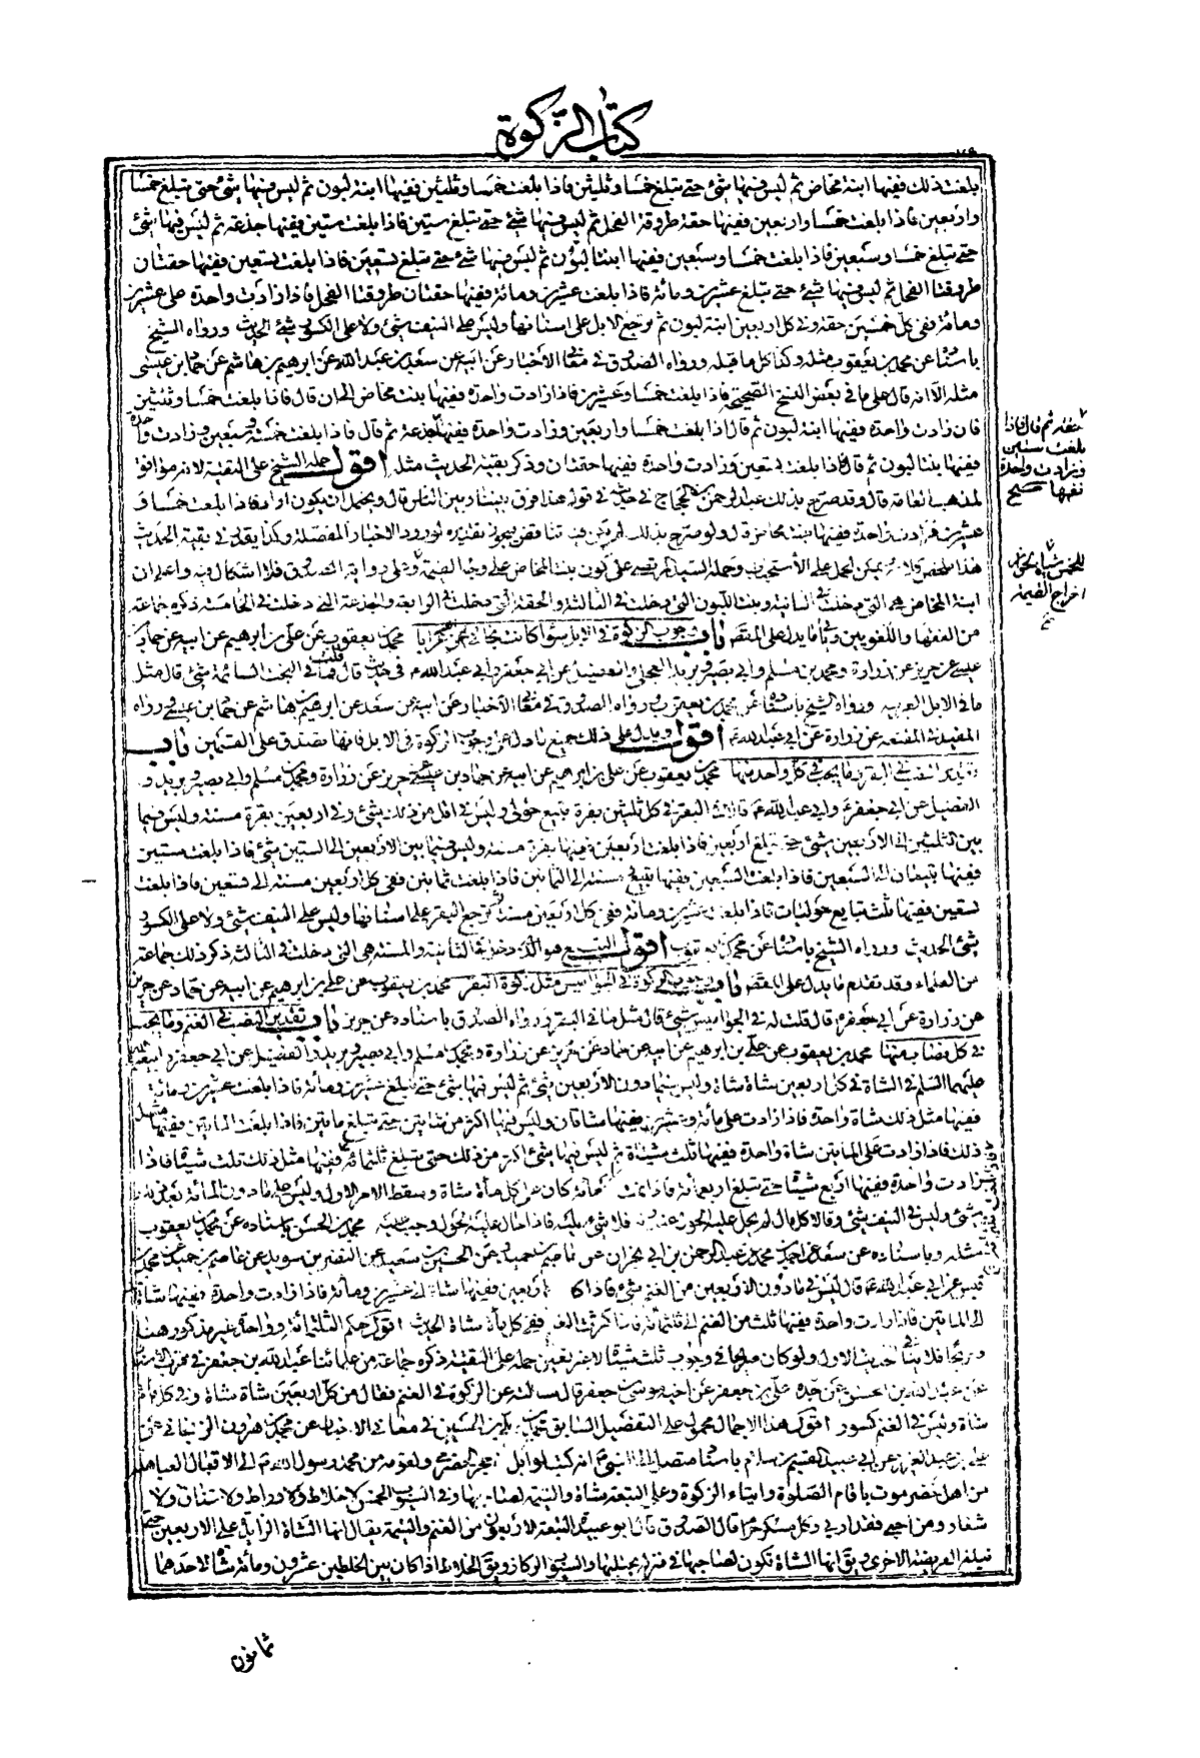 كتاب الزكوة
بلغت ذلك ففيها ابنة مخاض ثم ليس فيها شئ حتى تبلغ خمسا وثلثين فاذا بلغت خمسا وثلثين ففيها ابنة لبون ثم ليس فيها شئ حتى تبلغ خمسا
واربعين فاذا بلغت خمسا واربعين ففيها حقة طروقة الفحل ثم ليس فيها شئ حتى تبلغ ستين فاذا بلغت ستين ففيها جذعة ثم ليس فيها شئ
حتى تبلغ خمسا وسبعين فاذا بلغت خمسا وسبعين ففيها ابنتا لبون ثم ليس فيها شئ حتى تبلغ تسعين فاذا بلغت تسعين ففيها حقتان
طروقتا الفحل ثم ليس فيها شئ حتى تبلغ عشرين ومائة فاذا بلغت عشرين ومائة ففيها حقتان طروقتا الفحل فاذا زادت واحدة على عشرين
ومائة ففى كل خمسين حقة وفى كل اربعين ابنة لبون ثم ترجع الابل على اسنانها وليس على النيف شئ ولا على الكسور شئ الحديث ورواه الشيخ
باسناده عن محمد بن يعقوب مثله وكذا كل ما قبله ورواه الصدوق فى معانى الأخبار عن ابيه عن سعد بن عبد الله عن ابرهيم بن هاشم عن حماد بن عيسى
مثله الا انه قال على ما فى بعض النسخ الصحيحة فاذا بلغت خمسا وعشرين فاذا زادت واحدة ففيها بنت مخاض الى ان قال فاذا بلغت خمسا وثلثين
فان زادت واحدة ففيها ابنة لبون ثم قال اذا بلغت خمسا واربعين وزادت واحدة ففيها حقة ثم قال فاذا بلغت خمسة وسبعين وزادت واحدة
ففيها بنتا لبون ثم قال فاذا بلغت تسعين وزادت واحدة ففيها حقتان وذكر بقية الحديث مثله اقول حمله الشيخ على التقية لانه موافق
لمذهب العامة قال وقد صرح بذلك عبد الرحمن بن الحجاج فى حديثه فى قوله هذا فرق بيننا وبين الناس قال ويحتمل ان يكون اراد فاذا بلغت خمسا و
عشرين فزادت واحدة ففيها ابنة مخاض قال ولو صرح بذلك لم يكن فيه تناقض فيجوز تقديره لورود الاخبار المفصلة وكذا يقدر فى بقية الحديث
هذا ملخص كلامه ويمكن الحمل على الأستحباب وحمله السيد المرتضى على كون بنت المخاض على وجه القيمة وعلى رواية الصدوق فلا اشكال فيه واعلم ان
ابنة المخاض هى التى دخلت فى الثانية وبنت اللبون التى دخلت فى الثالثة والحقة التى دخلت فى الرابعة والجذعة التى دخلت فى الخامسة ذكره جماعة
من الفقهاء واللغويين ويأتى ما يدل على المقصود باب وجوب الزكوة فى الابل سواء كانت بخاتى ام عرابا محمد بن يعقوب عن على بن ابرهيم عن ابيه عن حماد بن
عيسى عن حريز عن زرارة ومحمد بن مسلم وابى بصير وبريد العجلى والفضيل عن ابى جعفر وابى عبد الله ع فى حديث قال قلت فما فى البخت السائمة شئ قال مثل
ما فى الابل العربية ورواه الشيخ باسناده عن محمد بن يعقوب ورواه الصدوق فى معانى الأخبار عن ابيه عن سعد عن ابرهيم بن هاشم عن حماد بن عيسى ورواه
المفيد فى المقنعة عن زرارة عن ابى عبد الله ع اقول ويدل على ذلك جميع ما دل على وجوب الزكوة فى الابل فانها تصدق على القسمين باب
تقدير النصب فى البقر وما يجب فى كل واحد منها محمد بن يعقوب عن على بن ابرهيم عن ابيه عن حماد بن عيسى عن حريز عن زرارة ومحمد بن مسلم وابى بصير وبريد و
الفضيل عن ابى جعفر ع وابى عبد الله ع قالا فى البقر فى كل ثلثين بقرة تبيع حولى وليس فى اقل من ذلك شئ وفى اربعين بقرة مسنة وليس فيما
بين الثلثين الى الاربعين شئ حتى تبلغ اربعين فاذا بلغت اربعين ففيها بقرة مسنة وليس فيما بين الأربعين الى الستين شئ فاذا بلغت ستين
ففيها تبيعان الى السبعين فاذا بلغت السبعين ففيها تبيع ومسنة الى الثمانين فاذا بلغت ثمانين ففى كل اربعين مسنة الى تسعين فاذا بلغت
تسعين ففيها ثلث تبايع حوليات فاذا بلغت عشرين ومائة ففى كل اربعين مسنة ثم ترجع البقر على اسنانها وليس على النيف شئ ولا على الكسور
شئ الحديث ورواه الشيخ باسناده عن محمد بن يعقوب اقول التبيع هو الذى دخل فى الثانية والمسنة هى التى دخلت فى الثالثة ذكر ذلك جماعة
من العلماء وقد تقدم ما يدل على المقصود باب وجوب الزكوة فى الجواميس مثل زكوة البقر محمد بن يعقوب عن على بن ابرهيم عن ابيه عن حماد عن حريز
عن زرارة عن ابى جعفر ع قال قلت له فى الجواميس شئ قال مثل ما فى البقر ورواه الصدوق باسناده عن حريز باب تقدير النصب فى الغنم وما يجب
فى كل نصاب منها محمد بن يعقوب عن على بن ابرهيم عن ابيه عن حماد عن حريز عن زرارة ومحمد بن مسلم وابى بصير وبريد والفضيل عن ابى جعفر وابى عبد الله
عليهما السلم فى الشاة فى كل اربعين شاة شاة وليس فيما دون الأربعين شئ ثم ليس فيها شئ حتى تبلغ عشرين ومائة فاذا بلغت عشرين ومائة
ففيها مثل ذلك شاة واحدة فاذا زادت على مائة وعشرين ففيها شاتان وليس فيها اكثر من شاتين حتى تبلغ مأتين فاذا بلغت المأتين ففيها مثل
ذلك فاذا زادت على المأتين شاة واحدة ففيها ثلث شياة ثم ليس فيها شئ اكثر من ذلك حتى تبلغ ثلثمائة ففيها مثل ذلك ثلث شياة فاذا
زادت واحدة ففيها اربع شياة حتى تبلغ اربعمائة فاذا تمت اربعمائة كان على كل مأة شاة وسقط الامر الاول وليس على ما دون المائة بعد ذلك
شئ وليس فى النيف شئ وقالا كل مال لم يحل عليه الحول عند ربه فلا شئ عليه فاذا حال عليه الحول وجب عليه محمد بن الحسن باسناده عن محمد بن يعقوب
مثله وباسناده عن سعد عن احمد بن محمد عن عبد الرحمن بن ابى نجران عن عاصم بن حميد وعن الحسين بن سعيد عن النضر بن سويد عن عاصم بن حميد عن محمد بن
قيس عن ابى عبد الله ع قال ليس فى ما دون الأربعين من الغنم شئ فاذا كانت اربعين ففيها شاة الى عشرين ومائة فاذا زادت واحدة ففيها شاتان
الى المأتين فاذا زادت واحدة ففيها ثلث من الغنم الى ثلثمائة فاذا كثرت الغنم ففى كل مأة شاة الحديث اقول حكم الثلثمائة وواحدة غير مذكور هنا
شاة وليس فى الغنم كسور اقول هذا الاجمال محمول على التفصيل السابق
من اهل حضرموت باقام الصلوة وايتاء الزكوة وعلى التيعة شاة والتيمة لصاحبها وفى السيوب الخمس لا خلاط ولا وراط ولا شناق ولا
شغار ومن اجبى فقد اربى وكل مسكر حرام قال الصدوق قال ابو عبيد التيعة الاربعون من الغنم والتيمة يقال انها الشاة الزايدة على الاربعين حتى
تبلغ الفريضة الاخرى ويق انها الشاة تكون لصاحبها فى منزله يحتلبها والسيوب الركاز ويق الخلاط اذا كان بين الخليطين عشرون ومائة شاة لاحدهما
حقة ثم قال فاذا
بلغت ستين
وزادت واحدة
ففيها صح
للخمس شياة على
اخراج القيمة
ثمانون